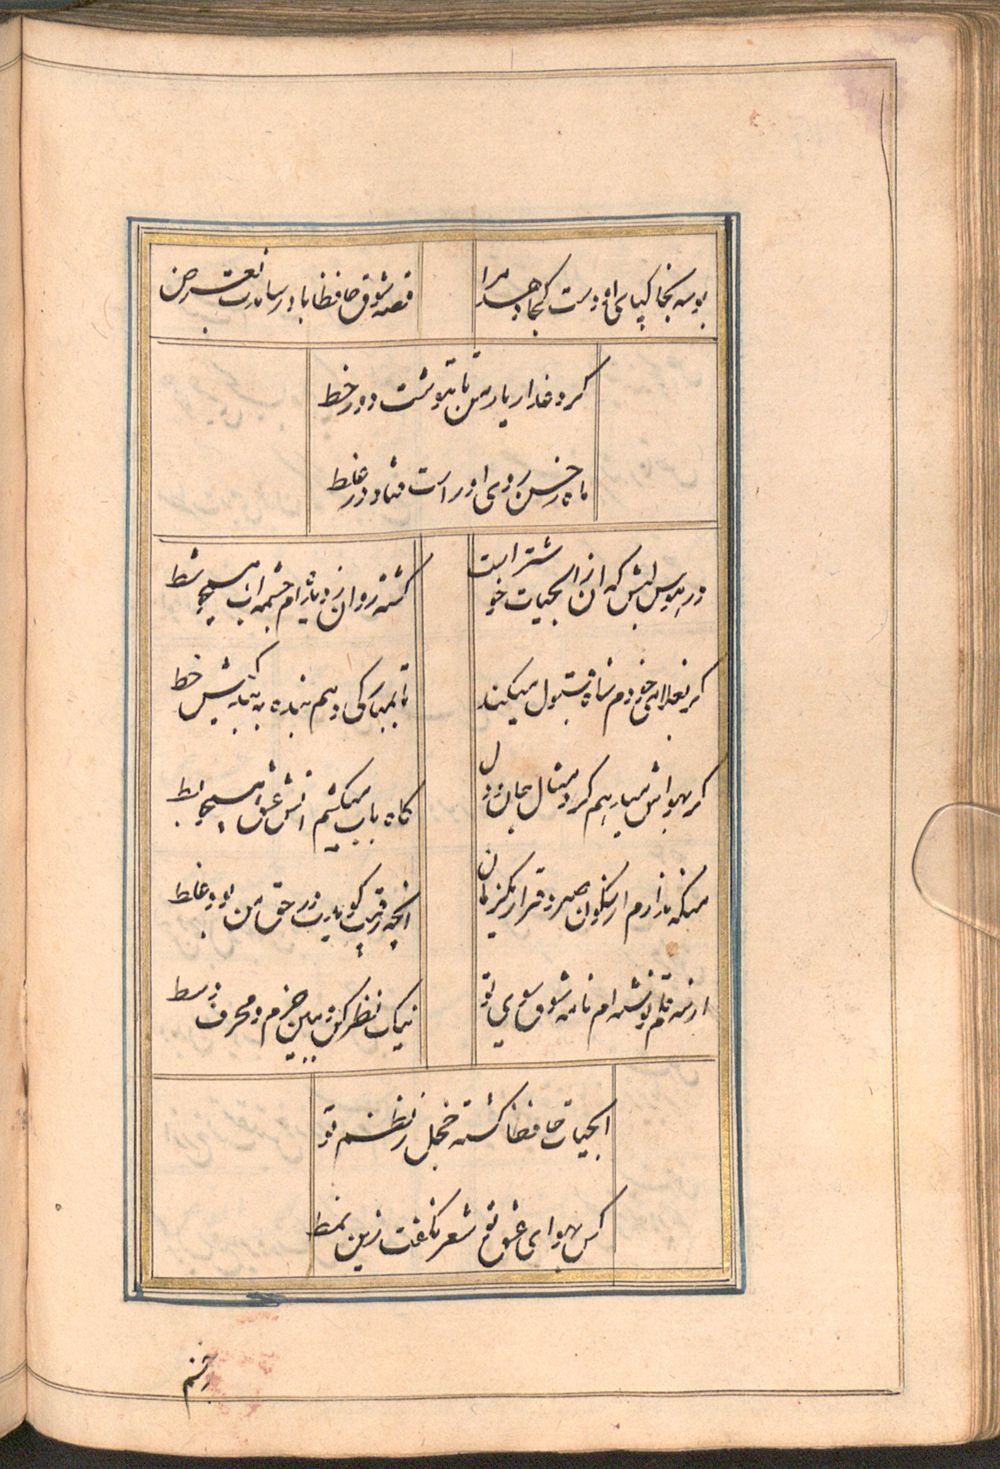 بوسه بخاکپای او دست کجا دهد مرا
قصه شوق حافظا باد رساندت بعرض
کرد عذار یار من تا بنوشت دور خط
ماه ز حسن روی او راست فتاد در غلط
در هوس لبش که آن از آبحیات خوشتر است
کشته روان ز دیده ام چشمه آب همچو شط
کر بغلامی خودم شاه قبول میکند
تا بمبارکی دهم بنده به بندکیش خط
کر بهواش میدهم کرد مثال جان و دل
کاه باب میکشم آتش عشق همچو بط
من که ندارم از نکون صبر و قرار یکزمان
آنچه رقیب کویدت در حق من بود غلط
از سه قلم نوشته ام نامه شوق سوی تو
نیک نظر کن و ببین جزم و محرف و وسط
آبحیات حافظا کشته خجل ز نظم تو
کس بهوای عشق تو شعر نکفت زین نمط